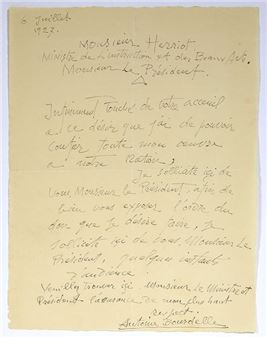 6 Juillet
1927.
Monsieur Herriot
Ministre de l'Instruction et des Beaux Arts.
Monsieur Le Président.
Intimement touché de votre accueil
a ce désir que j'ai de pouvoir
toute mon œuvre
a notre Nation,
Je sollicite ici de
vous Monsieur le Président, afin de
bien vous exposer l'ordre du
don que je désire faire, je
sollicite ici de vous, Monsieur Le
Président, quelques instants
d'audience.
Veuillez trouver ici Monsieur le Ministre et
Président l'assurance de mon plus haut
respect.
Antoine Bourdelle